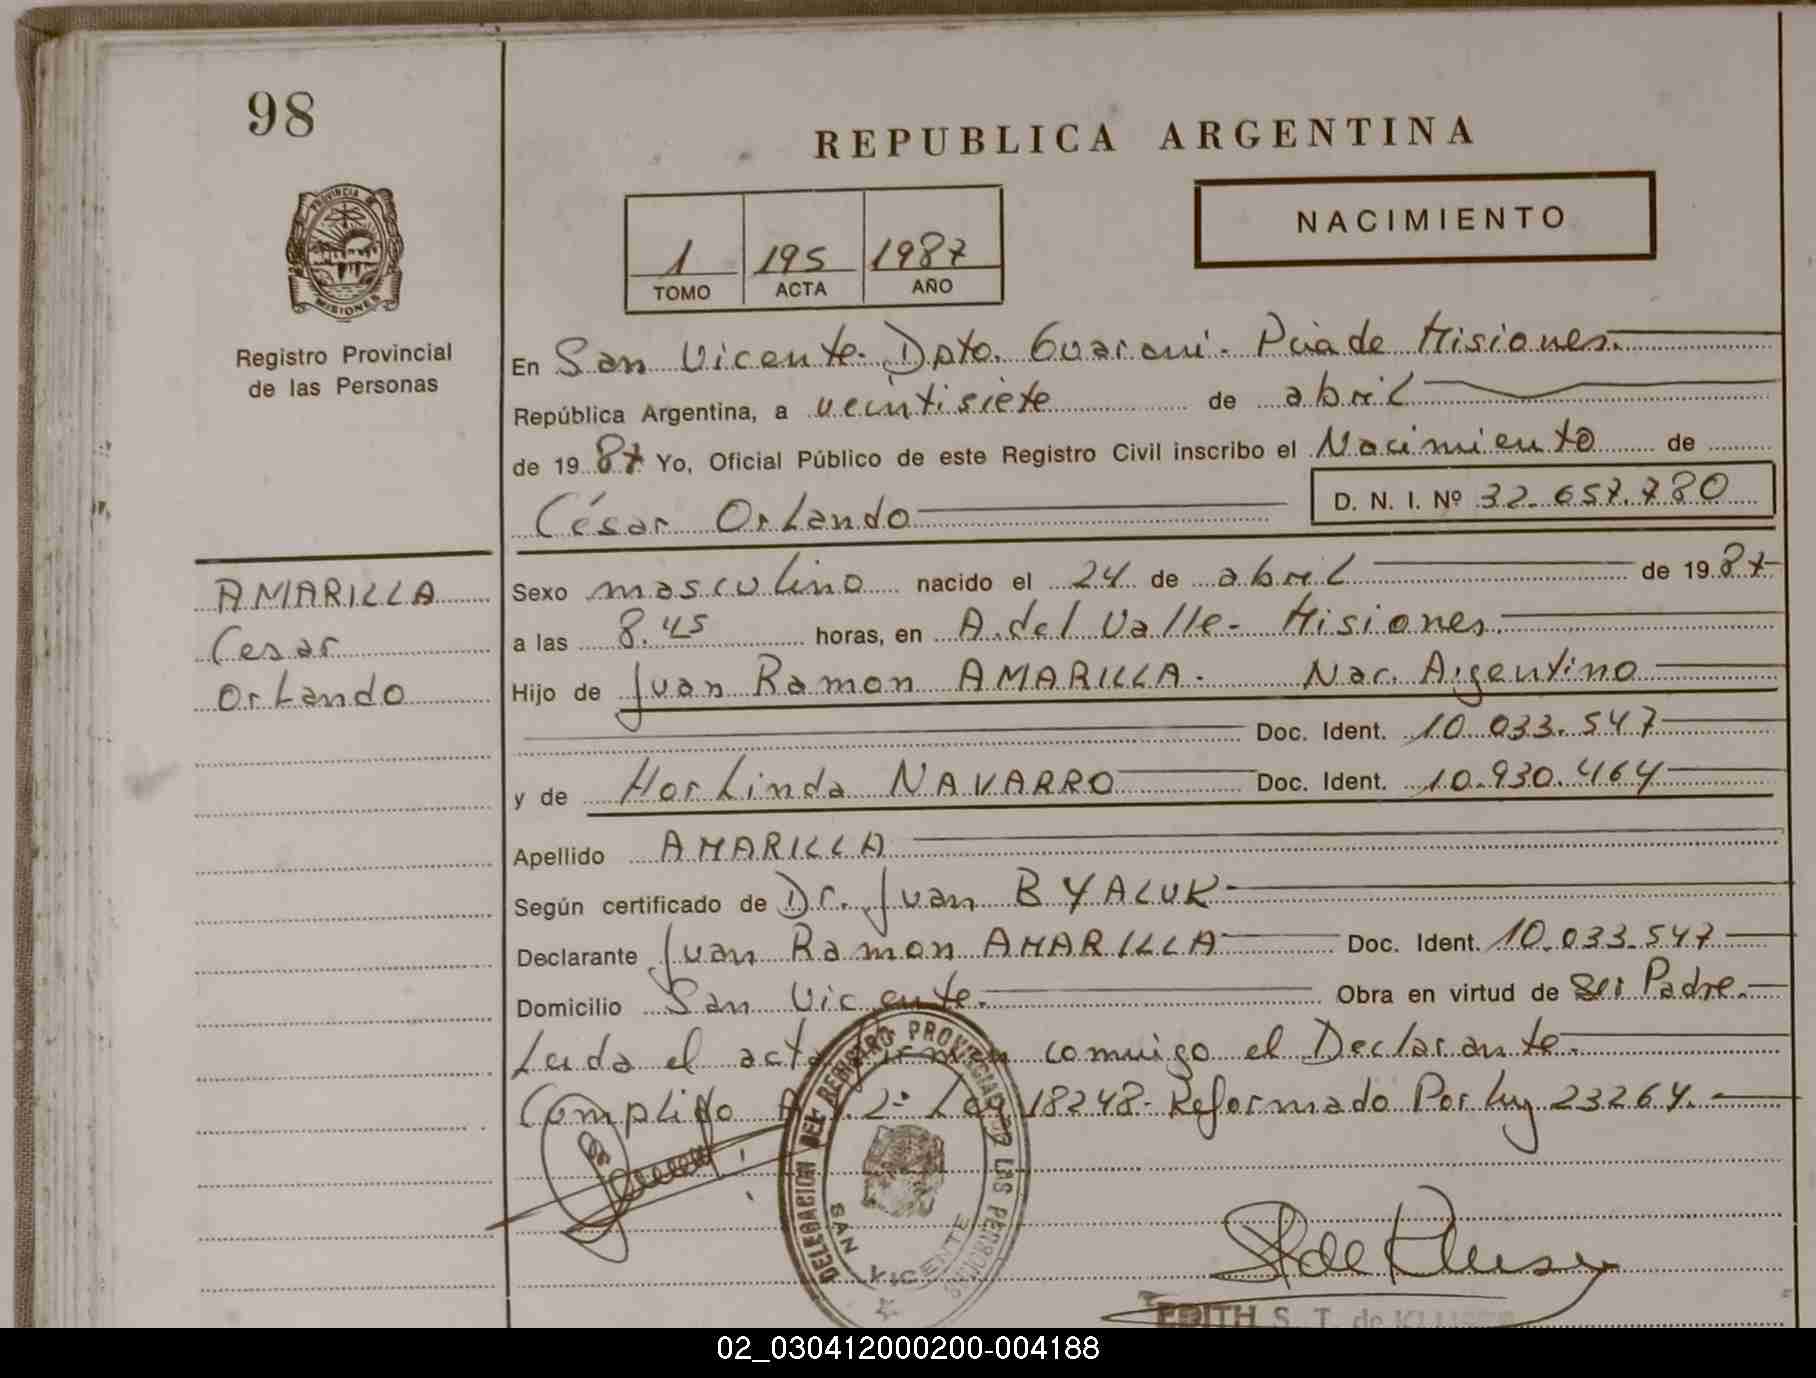 98
REPUBLICA ARGENTINA
NACIMIENTO
1 195 1987
TOMO ACTA AÑO
PROVINCIA DE
MISIONES
Registro Provincial
de las Personas
En San Vicente. Dpto. Guarani. Pcia de Misiones.
República Argentina, a veintisiete de abril
de 1987 Yo, Oficial Público de este Registro Civil inscribo el Nacimiento de
César Orlando D. N. I. Nº 32.657.780
AMARILLA
Cesar
Orlando
Sexo masculino nacido el 24 de abril de 1987
a las 8.45 horas, en A. del Valle - Misiones.
Hijo de Juan Ramon AMARILLA. Nac. Argentino
Doc. Ident. 10.033.547
y de Horlinda NAVARRO Doc. Ident. 10.930.464
Apellido AMARILLA
Según certificado de Dr. Juan BYALUK
Declarante Juan Ramon AMARILLA Doc. Ident. 10.033.547
Domicilio San Vicente. Obra en virtud de ser Padre.
Leida el acta firman conmigo el Declarante.
Complido 2º Ley 18248- Reformado Por Ley 23264.
DELEGACION DEL REGISTRO PROVINCIAL DE LAS PERSONAS
SAN VICENTE
MISIONES
EDITH S. T. de
02_030412000200-004188